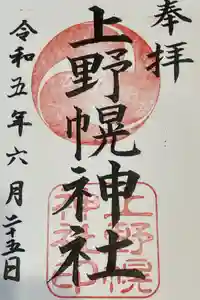 奉拝
上野幌神社
令和五年六月二十五日
上野幌
神社印